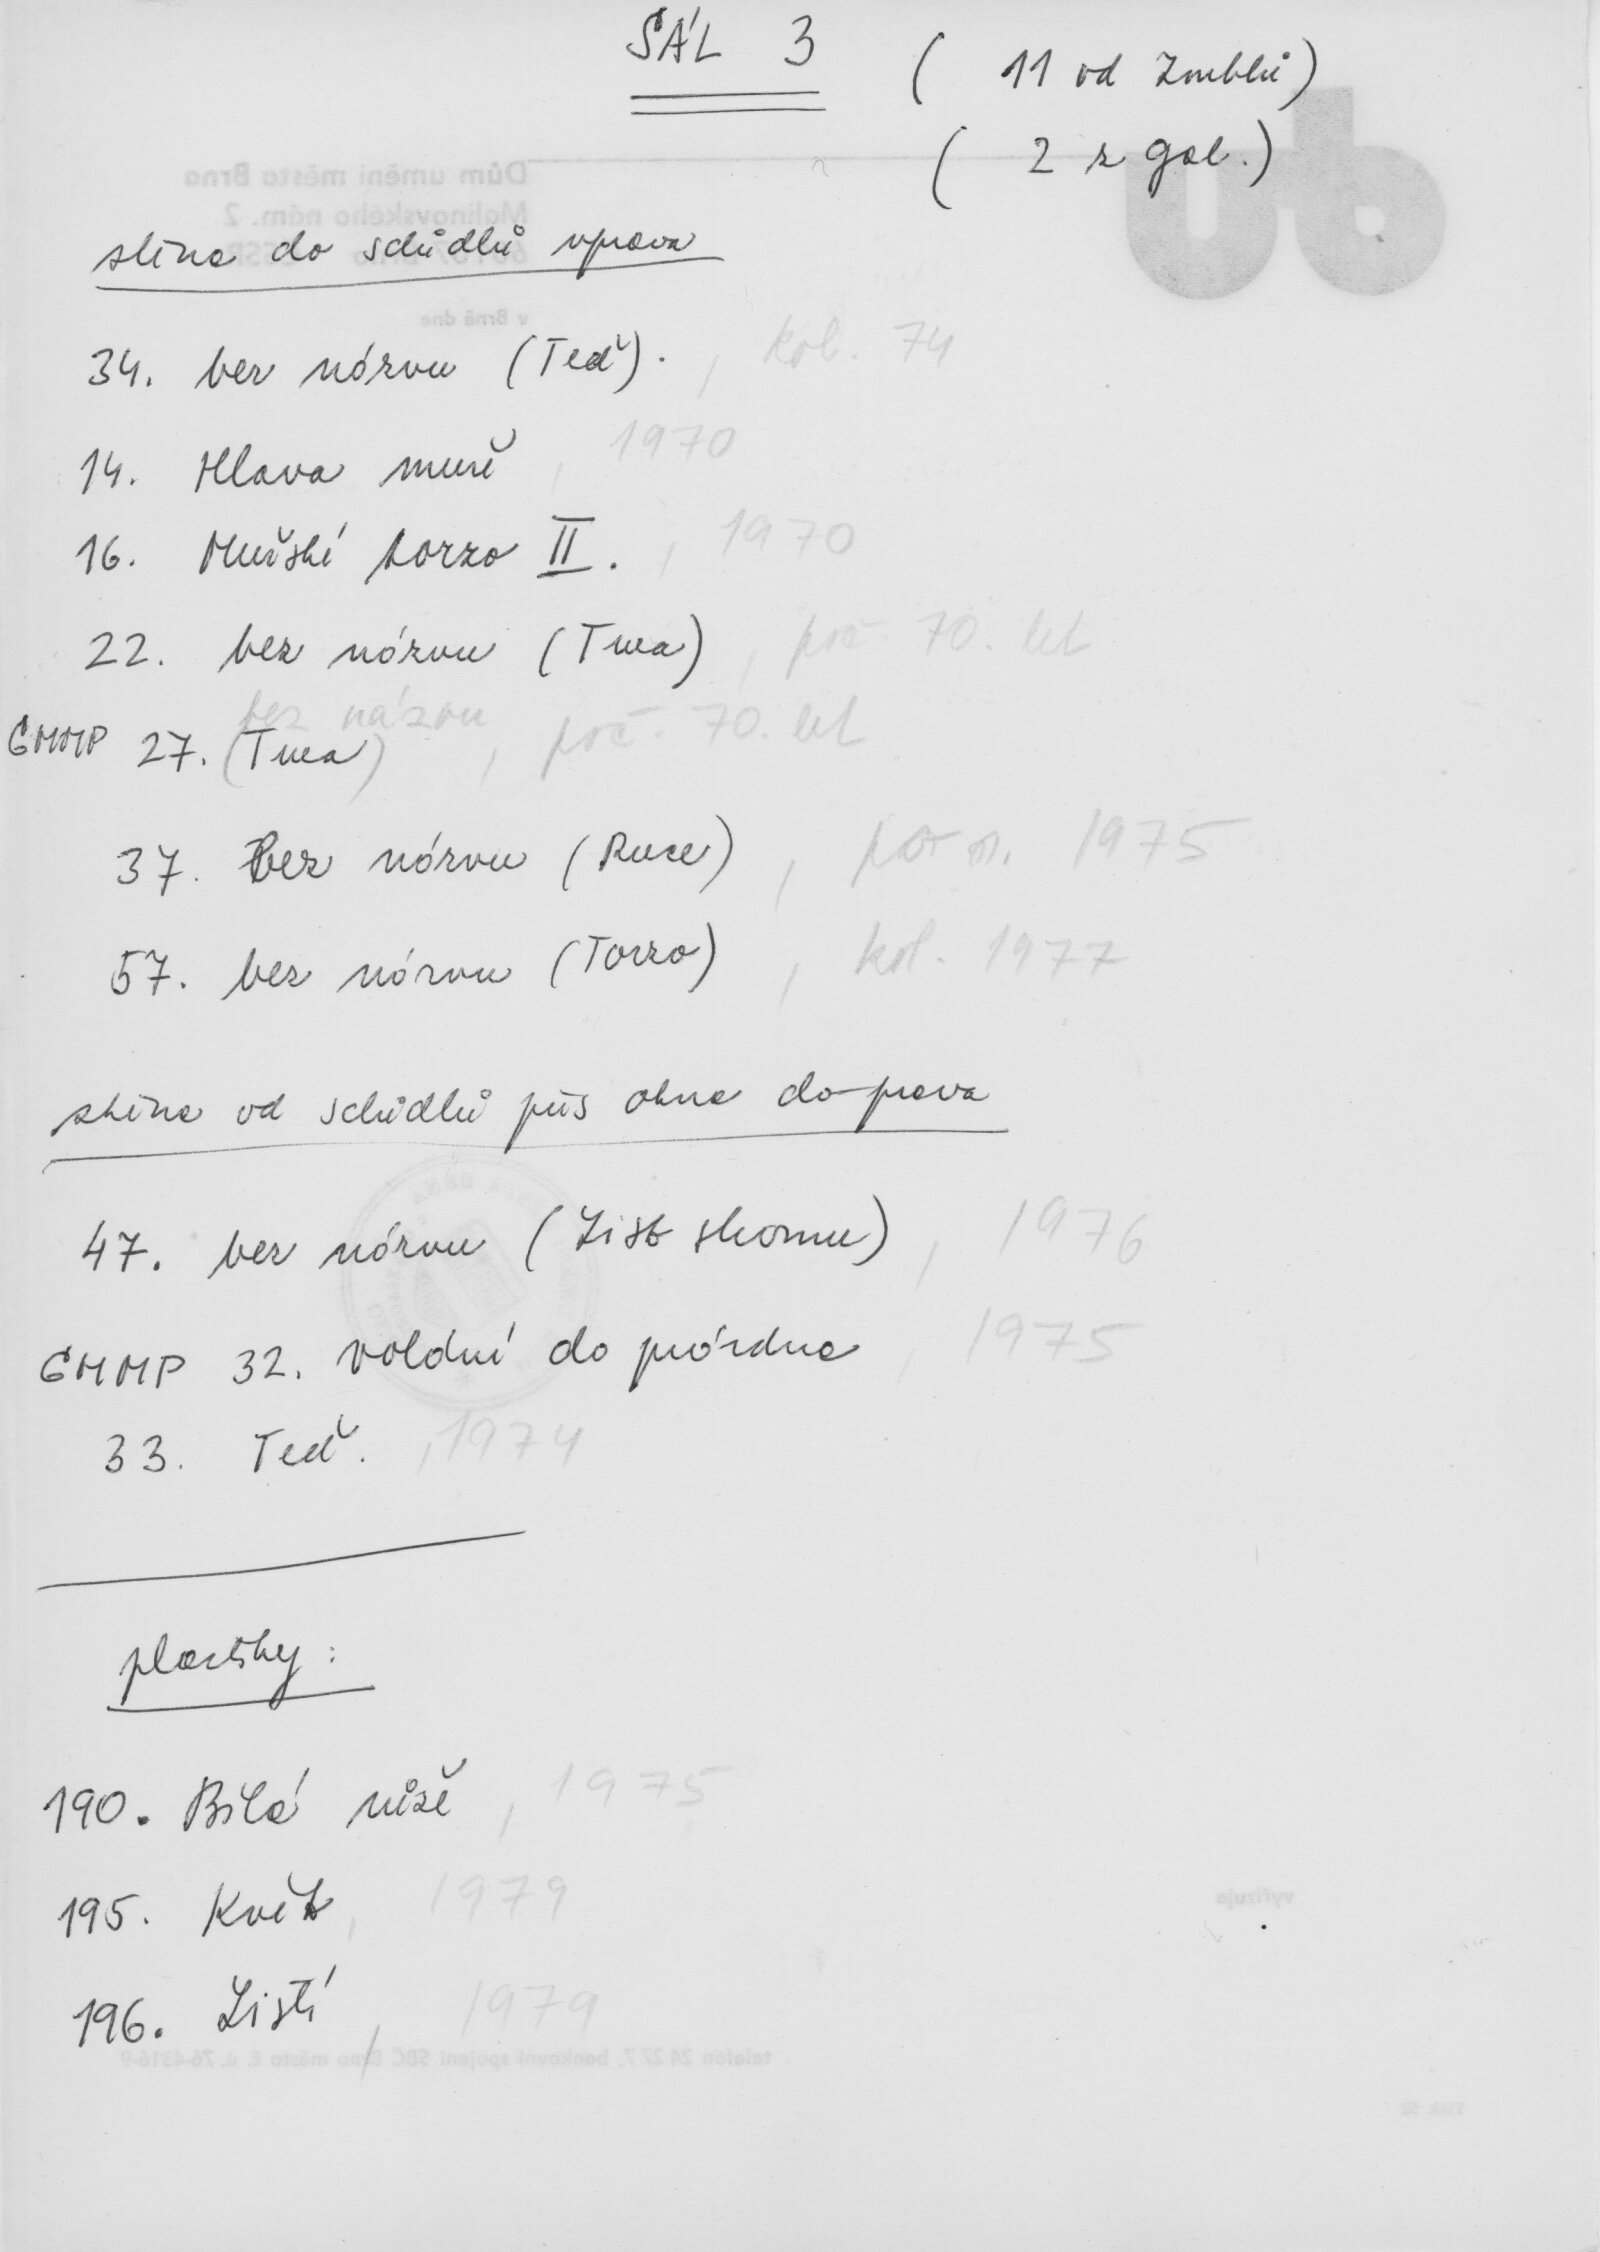 SÁL 3 ( 11 od Zmblů )
( 2 z gal. )
Dům umění města Brna
Malinovského nám. 2
stěna do schůdků vprava
v Brně dne
34. bez názvu (Teď). , kol. 74
14. Hlava muže , 1970
16. Mužské torzo II. , 1970
22. bez názvu (Tvea) , poč. 70. let
bez názvu
GHMP 27. (Tvea) , poč. 70. let
37. Bez názvu (Ruce) , 1975
57. bez názvu (Torzo) , kol. 1977
stěna od schůdků přes okna do prava
47. bez názvu (List stromu) , 1976
GHMP 32. volání do prázdna , 1975
33. Teď. , 1974
plastiky :
190. Bílá růže , 1975
195. Květ , 1979
vyřizuje
196. Listí , 1979
telefon 24 27 7, bankovní spojení SBČ Brno město č. ú. 76-4316-9